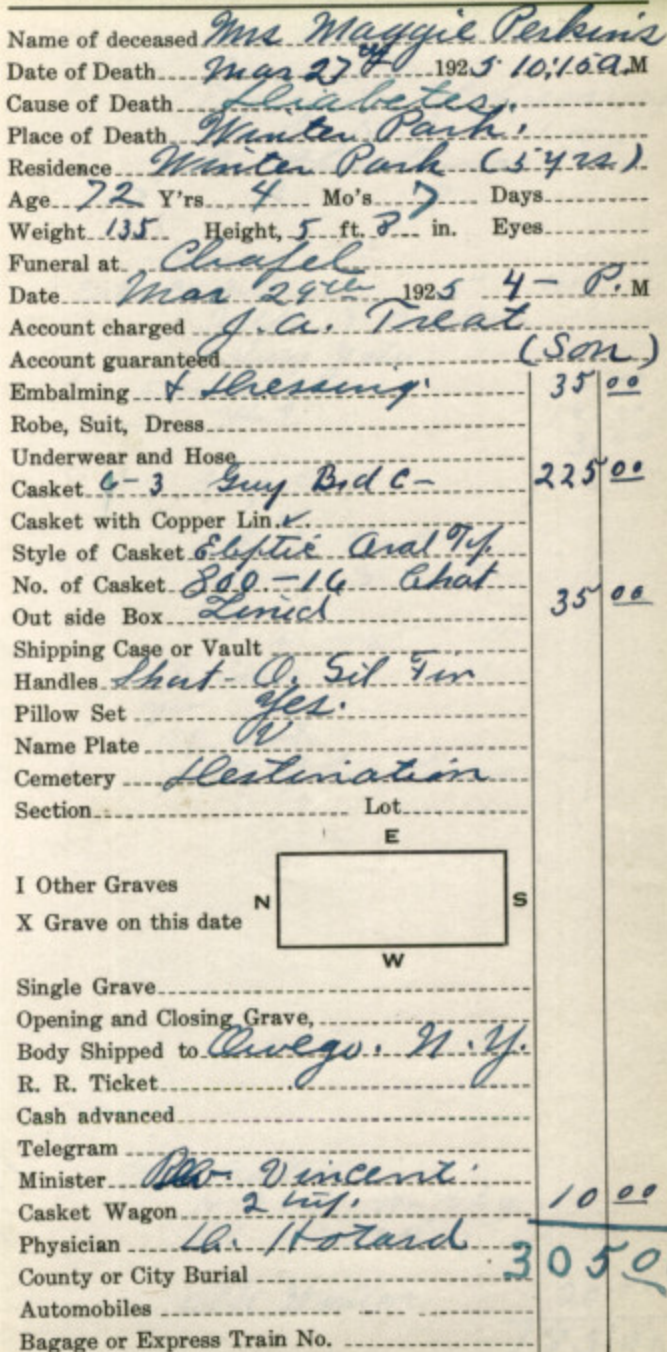 Name of deceased Mrs Maggie Perkins
Date of Death Mar 27th 1925 10:15 a.M
Cause of Death Diabetes.
Place of Death Winter Park.
Residence Winter Park (5 yrs.)
Age 72 Y'rs 4 Mo's 7 Days
Weight 135 Height, 5 ft. 8 in. Eyes
Funeral at Chapel
Date Mar 29th 1925 4 - P. M
Account charged J. A. Treat
Account guaranteed (Son)
Embalming & Dressing. 35 00
Robe, Suit, Dress
Underwear and Hose
Casket 6-3 Guy Brd C- 225 00
Casket with Copper Lin. ✓.
Style of Casket Eliptic Oval
No. of Casket 800-16
Out side Box Lined 35 00
Shipping Case or Vault
Handles Short - O. Sil Fin
Pillow Set Yes.
Name Plate
Cemetery Destination
Section Lot
E
I Other Graves
N S
X Grave on this date
W
Single Grave
Opening and Closing Grave,
Body Shipped to Owego. N.Y.
R. R. Ticket
Cash advanced
Telegram
Minister Rev. Vincent.
Casket Wagon 2 10 00
Physician Dr. Hotard
County or City Burial 305 0
Automobiles
Bagage or Express Train No.